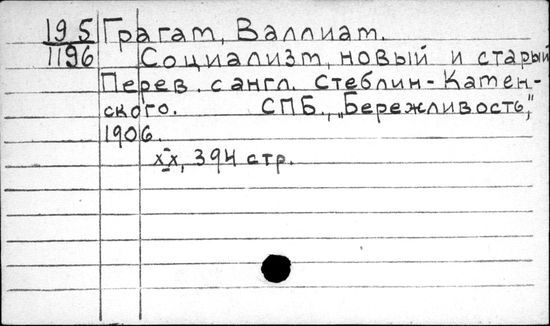 195 Грагам, Валлиат.
1196 Социализм, новый и старый
Перев. с англ. Стеблин-Катен-
ского. СПБ., „Бережливость",
1906.
xx, 394 стр.